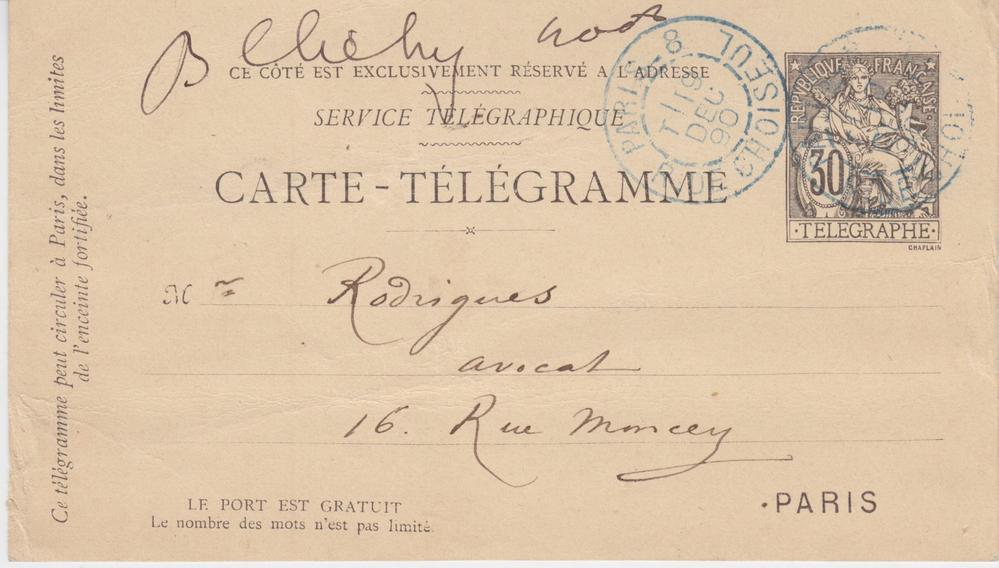 B Clichy
CE CÔTÉ EST EXCLUSIVEMENT RÉSERVÉ A L'ADRESSE
SERVICE TÉLÉGRAPHIQUE
CARTE-TÉLÉGRAMME
PARIS 8 RUE CHOISEUL
18
DEC
90
REPUBLIQUE FRANÇAISE
30
·TELEGRAPHE·
CHAPLAIN
Mr Rodrigues
avocat
16. Rue Moncey
·PARIS
LE PORT EST GRATUIT
Le nombre des mots n'est pas limité.
Ce télégramme peut circuler à Paris, dans les limites
de l'enceinte fortifiée.